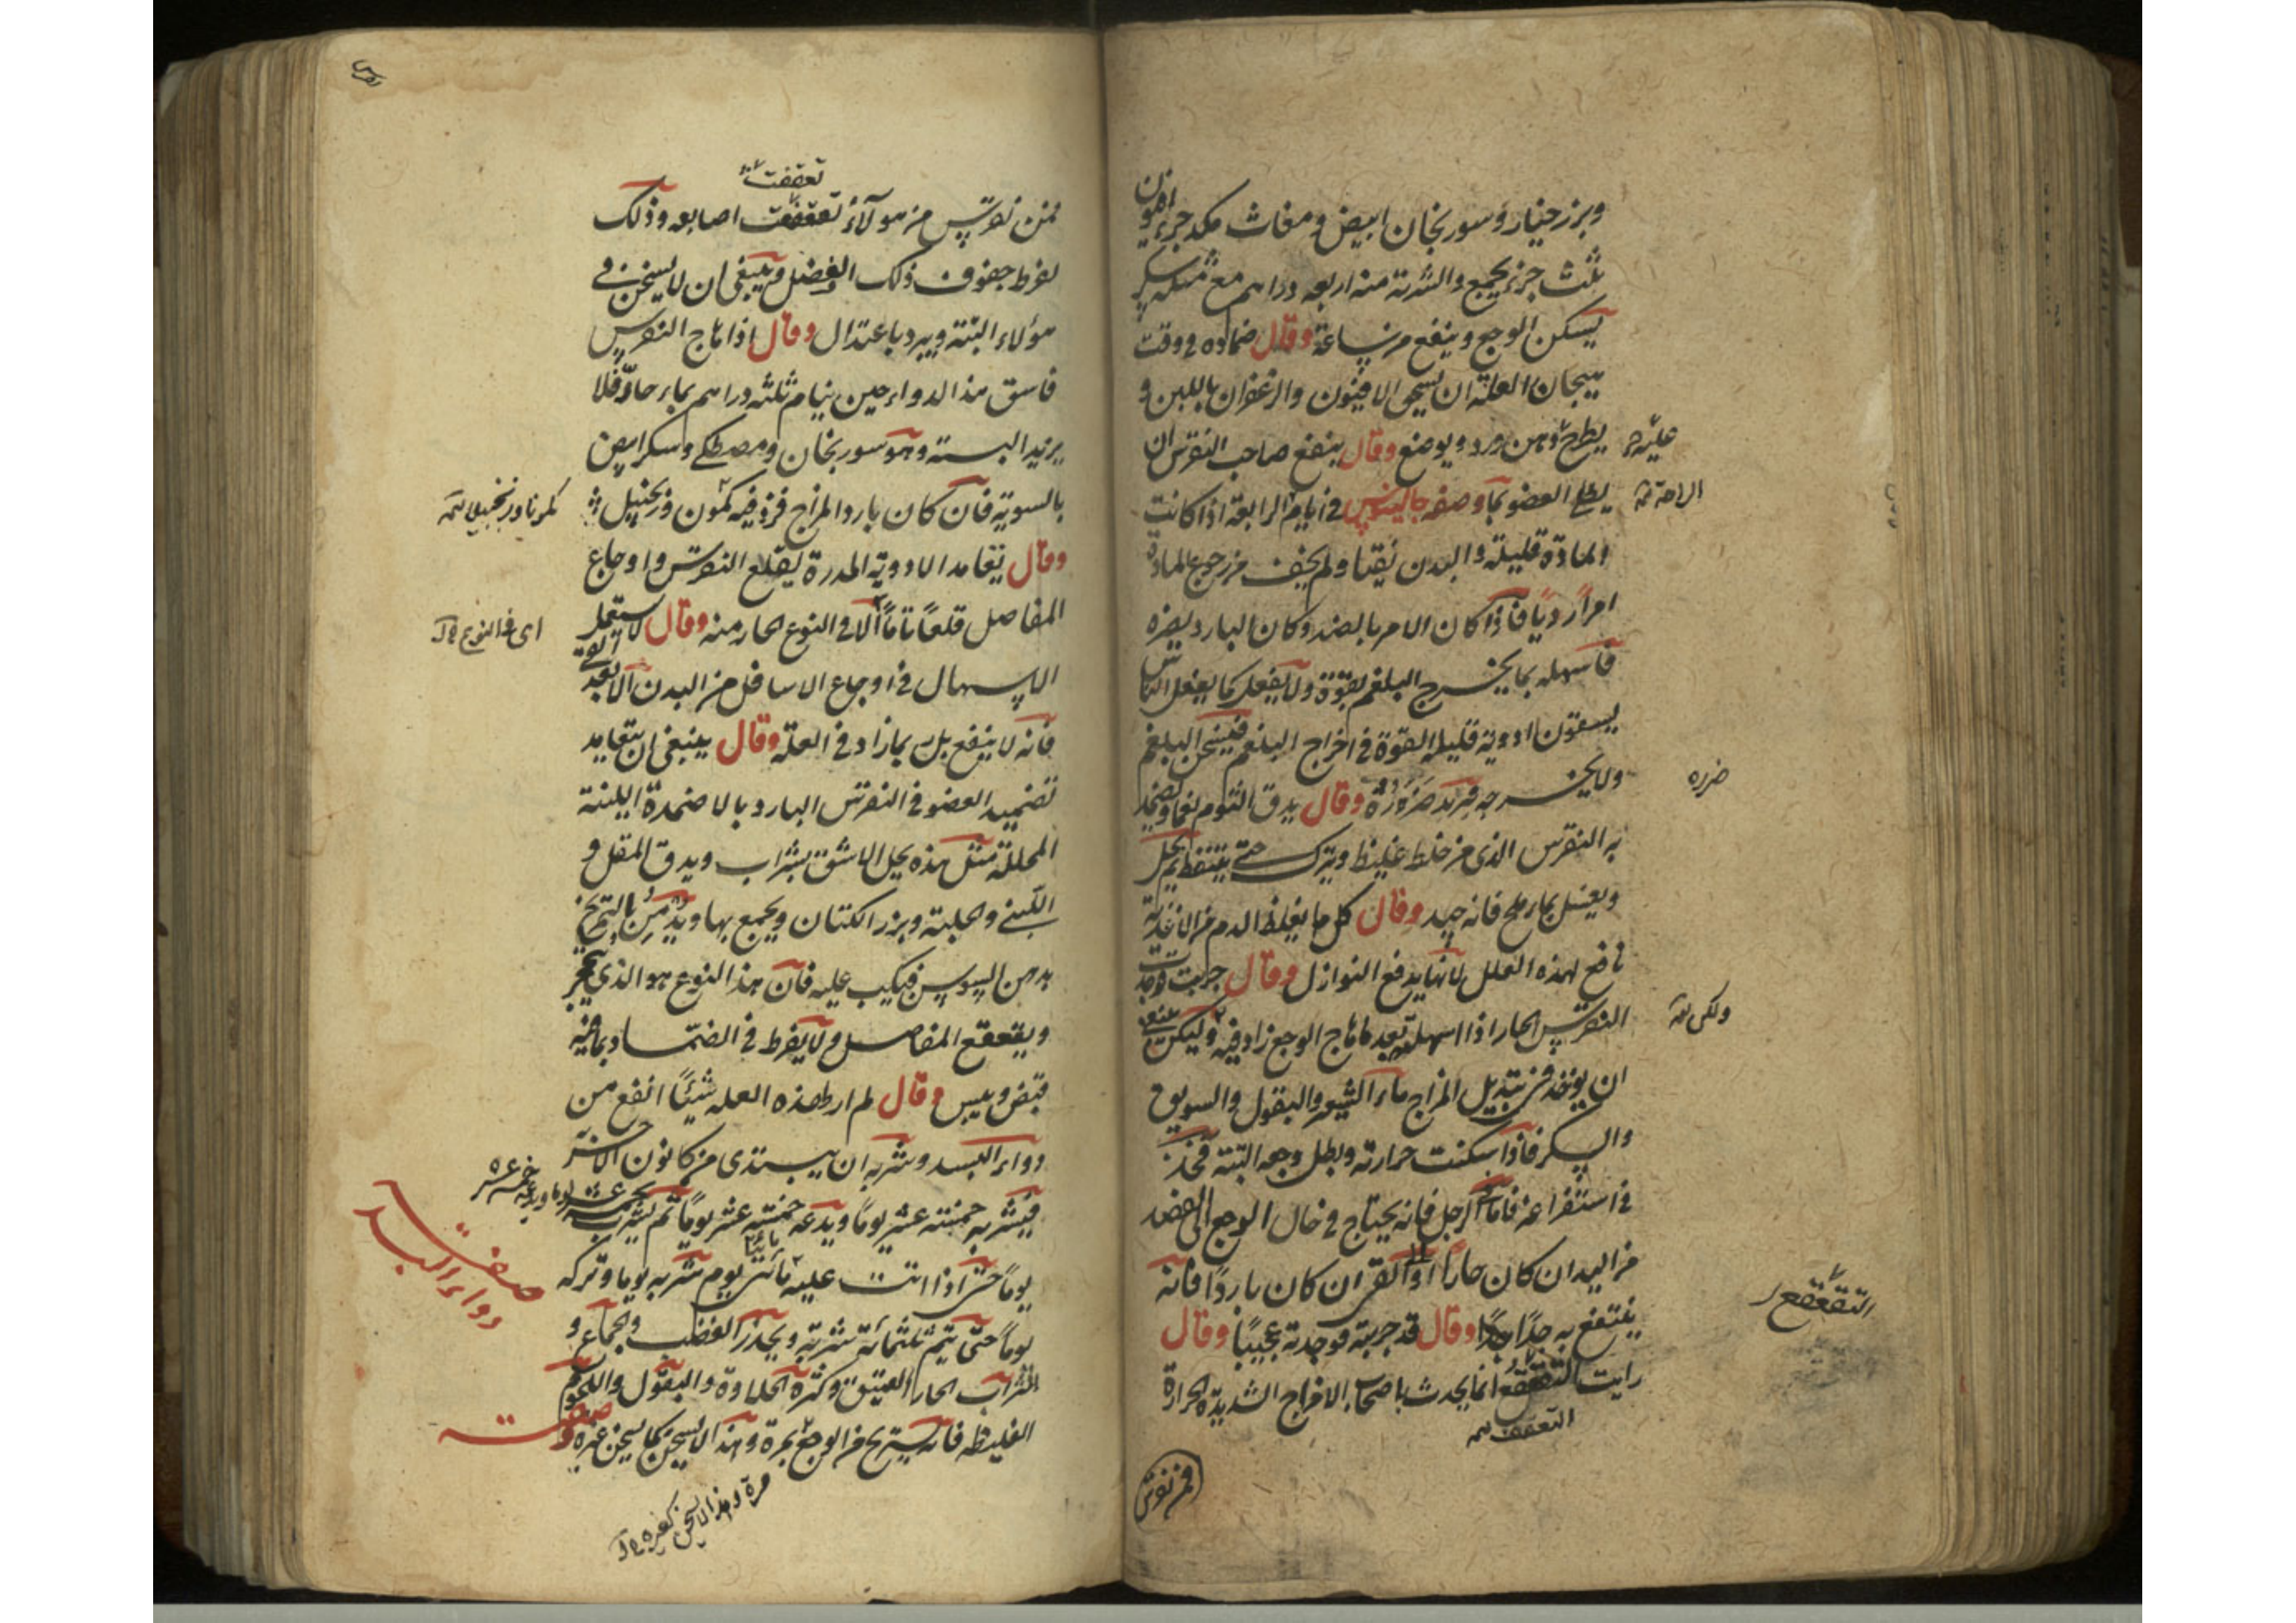 وبزر خيار وسورنجان ابيض ومغاث مكد جزء افيون
ثلث جزء يجمع والشربة منه اربعه دراهم مع مثله سكر
يسكن الوجع وينفع من ساعة وقال ضماده في وقت
هيجان العلة ان يسحق الافيون والزعفران باللبن و
يطرح دهن ورد ويوضع وقال ينفع صاحب النقرس ان
عليه
يطلى العضو بما وصفه جالينوس في ايام الرابعة اذا كانت
الراحة
المادة قليلة والبدن نقيا ولم يخف من رجوع المادة
امرا رديا فاذا كان الامر بالضد وكان البارد يضره
فاسهله بما يخرج البلغم بقوة ولا يفعل كما يفعل الناس
يسقون ادوية قليلة القوة في اخراج البلغم فيسخن البلغم
ولا يخرجه فيزيد ضرورة وقال يدق الثوم نعما ويضمد
ضرره
به النقرس الذي من خلط غليظ ويترك حتى يتنفط ثم يحل
ويغسل بماء ملح فانه جيد وقال كل ما يغلظ الدم من الاغذية
نافع لهذه العلل لانها يدفع النوازل وقال جربت فوجدت
النقرس الحار اذا اسهلته بعد ما هاج الوجع زاد فيه وليكن ينبغي
ولكن
ان يوخذ في تبديل المزاج ماء الشعير والبقول والسويق
والسكر فاذا سكنت حرارته وبطل وجعه البتة فخذ
في استفراغه فاما الرجل فانه يحتاج في حال الوجع الى الفصد
من اليد ان كان حارا او القي ان كان باردا فانه
ينتفع به جدا جدا وقال قد جربته فوجدته عجيبا وقال
التقفع
رايت التقفع انما يحدث باصحاب الامزاج الشديدة الحرارة
التعقف
فمن نقرس
نقرس
تعقفت
فمن نقرس من هولاء تقفعت اصابعه وذلك
لفرط جفوف ذلك الفضل وينبغي ان لا يسخن في
هولاء البتة ويبرد باعتدال وقال اذا هاج النقرس
فاسق هذا الدواء حين ينام ثلثه دراهم بماء حار فلا
يزيد البسته وهو سورنجان ومصطكى وسكر ابيض
بالسوية فان كان بارد المزاج فزد فيه كمون وزنجبيل
كمونا وزنجبيلا
وقال يتعاهد الادوية المدرة يقلع النقرس واوجاع
المفاصل قلعا تاما الا في النوع الحار منه وقال لا يستعمل
اى في النوع
الاسهال في اوجاع الاسافل من البدن الا بعد القي
فانه لا ينفع بل ربما زاد في العلة وقال ينبغي ان يتعاهد
تضميد العضو في النقرس البارد بالاضمدة اللينة
المحللة مثل هذه يحل الاشق بشراب ويدق المقل و
اللبنى والحلبة وبزر الكتان ويجمع بها ويدمن بالتمريخ
بدهن السوسن فيكب عليه فان هذا النوع هو الذي يتحجر
ويقفقع المفاصل ولا يفرط في الضماد بما فيه
قبض ويبس وقال لم ار لهذه العله شيئا انفع من
دواء البسد وشربه ان يبتدى من كانون الاخر
فيشربه خمسته عشر يوما ويدعه خمسته عشر يوما ثم يشربه
يوما ويدعه خمسة عشر
صفت دواء البسد
يوما حتى اذا اتت عليه مائتى يوم شربه يوما وتركه
يوما حتى يتم ثلثمائة شربة ويحذر الغضب والجماع و
الشراب الحار العتيق وكثرة الحلاوة والبقول واللحوم
الغليظه فانه يستريح من الوجع بمرة وهذا لا يسخن كما يسخن غيره
صفت
مرة وهذا لا يسخن كغيره